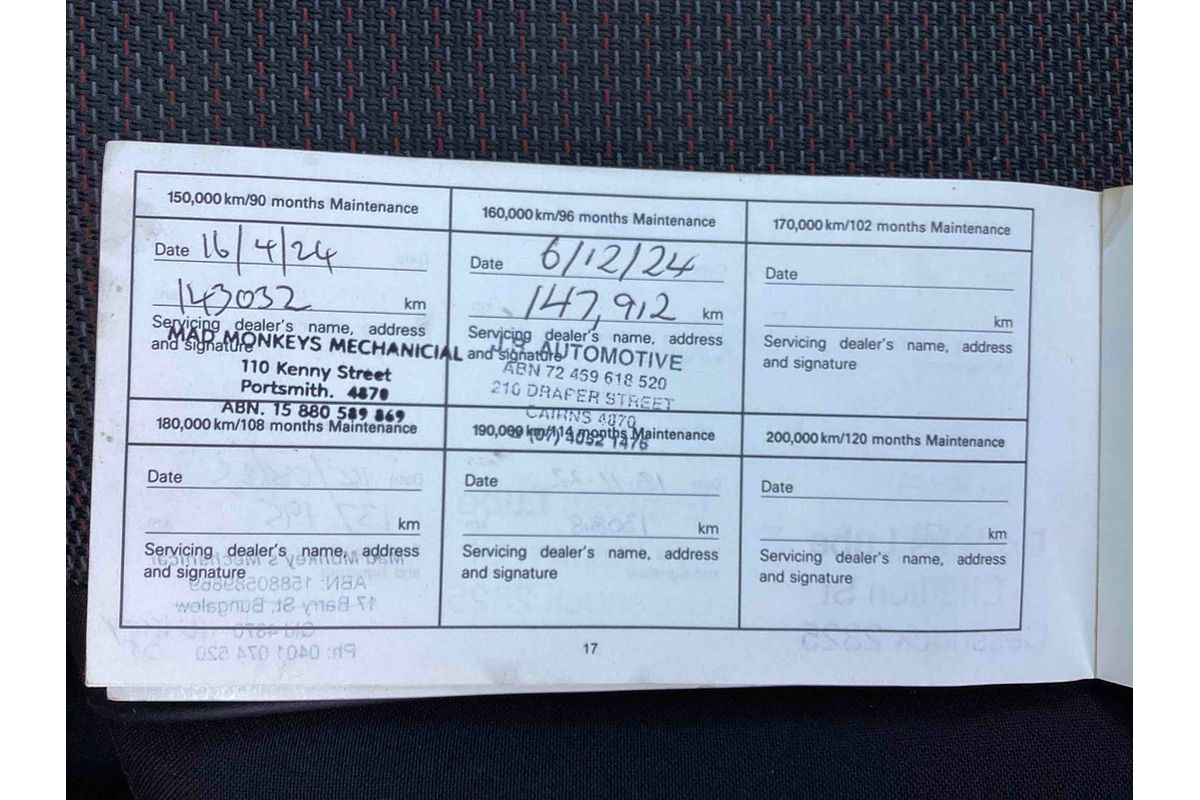 150,000 km/90 months Maintenance
Date 16/4/24
143032 km
Servicing dealer's name, address
and signature
MAD MONKEYS MECHANICIAL
110 Kenny Street
Portsmith. 4870
ABN. 15 880 589 869
160,000 km/96 months Maintenance
Date 6/12/24
147,912 km
Servicing dealer's name, address
and signature
AUTOMOTIVE
ABN 72 459 618 520
210 DRAPER STREET
CAIRNS 4870
(07) 4052 1476
170,000 km/102 months Maintenance
Date
km
Servicing dealer's name, address
and signature
180,000 km/108 months Maintenance
Date
km
Servicing dealer's name, address
and signature
190,000 km/114 months Maintenance
Date
km
Servicing dealer's name, address
and signature
200,000 km/120 months Maintenance
Date
km
Servicing dealer's name, address
and signature
17